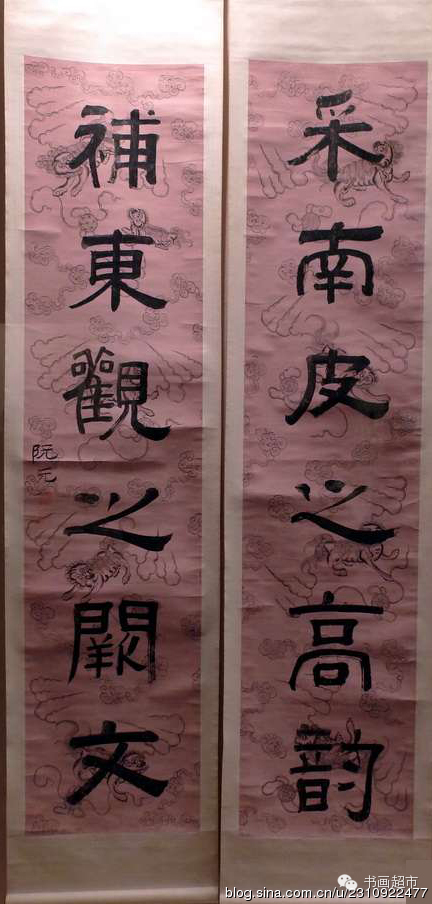 采南皮之高韵
補東觀之闕文
阮元
书画超市
blog.sina.com.cn/u/2310922477